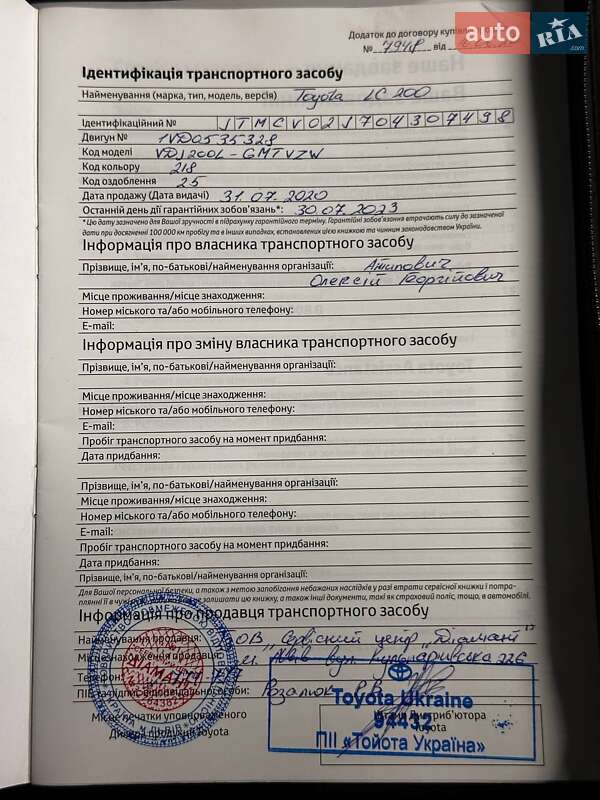 auto RIA.com
Додаток до договору купівлі
№ 7948 від
Ідентифікація транспортного засобу
Найменування (марка, тип, модель, версія) Toyota LC 200
Ідентифікаційний № JTMCV02J704307498
Двигун № 1VD0535328
Код моделі VDJ200L-GMTVZW
Код кольору 218
Код оздоблення 25
Дата продажу (Дата видачі) 31.07.2020
Останній день дії гарантійних зобов'язань*: 30.07.2023
* Цю дату зазначено для Вашої зручності в підрахунку гарантійного терміну. Гарантійні зобов'язання втрачають силу до зазначеної
дати при досягненні 100 000 км пробігу та в інших випадках, встановлених цією книжкою та чинним законодавством України.
Інформація про власника транспортного засобу
Прізвище, ім'я, по-батькові/найменування організації:
Олексій Георгійович
Місце проживання/місце знаходження:
Номер міського та/або мобільного телефону:
E-mail:
Інформація про зміну власника транспортного засобу
Прізвище, ім'я, по-батькові/найменування організації:
Місце проживання/місце знаходження:
Номер міського та/або мобільного телефону:
E-mail:
Пробіг транспортного засобу на момент придбання:
Дата придбання:
Прізвище, ім'я, по-батькові/найменування організації:
Місце проживання/місце знаходження:
Номер міського та/або мобільного телефону:
E-mail:
Пробіг транспортного засобу на момент придбання:
Дата придбання:
Прізвище, ім'я, по-батькові/найменування організації:
Для Вашої персональної безпеки, а також з метою запобігання небажаних наслідків у разі втрати сервісної книжки і потра-
залишати цю книжку, а також інші документи, такі як страховий поліс, тощо, в автомобілі.
Інформація про продавця транспортного засобу
Найменування продавця: ТОВ „Сервісний центр „Діамант"
Місцезнаходження продавця: м. Львів вул. Кульпарківська 226
Телефон:
ПІБ та підпис відповідальної особи:
Toyota Ukraine
94432
ПІІ «Тойота Україна»
Місце печатки уповноваженого
Дилера продукції Toyota
Штамп Дистриб'ютора
Toyota